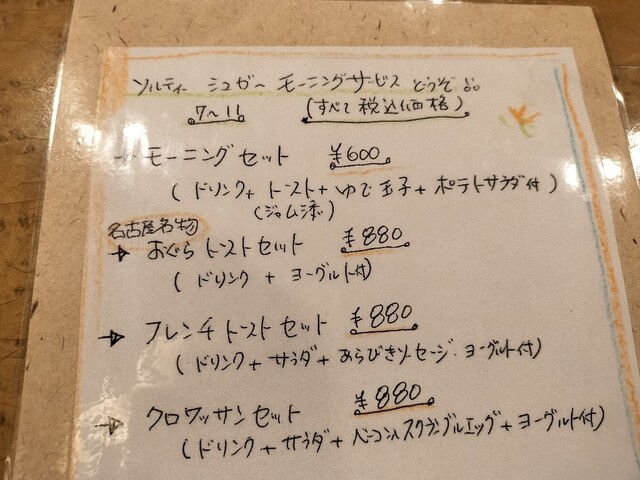 ソルティー シュガー モーニングサービス どうぞ
7〜11 (すべて税込価格)
モーニングセット ¥600
(ドリンク+トースト+ゆで玉子+ポテトサラダ付)
(ジャム添)
名古屋名物
→ おぐらトーストセット ¥880
(ドリンク + ヨーグルト付)
→ フレンチトーストセット ¥880
(ドリンク+サラダ+あらびきソーセージ.ヨーグルト付)
→ クロワッサンセット ¥880
(ドリンク+サラダ+ベーコン入スクランブルエッグ+ヨーグルト付)